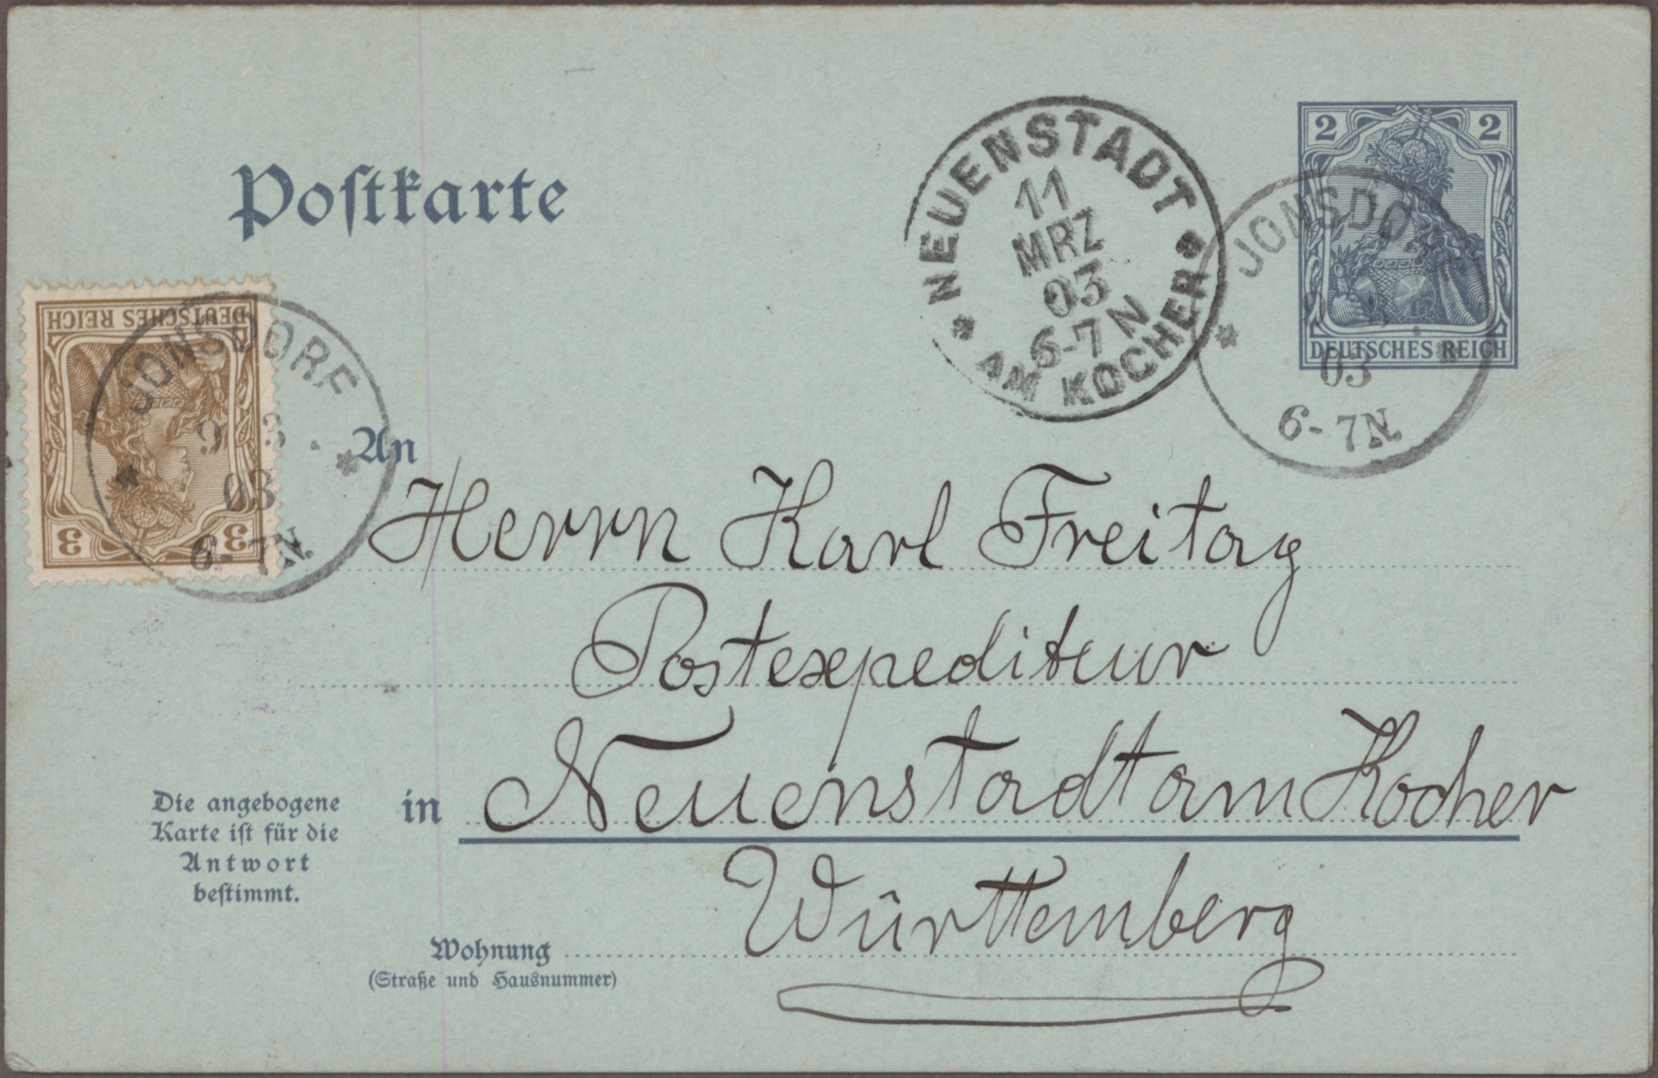 Postkarte
NEUENSTADT
11
MRZ
03
6-7 N
AM KOCHER
2 2
DEUTSCHES REICH
JONSDORF
03
6-7N.
DEUTSCHES REICH
3 3
JONSDORF
9 3
03
6-7N.
An
Herrn Karl Freitag
Postexpediteur
in Neuenstadt am Kocher
Württemberg
Die angebogene
Karte ist für die
Antwort
bestimmt.
Wohnung
(Straße und Hausnummer)